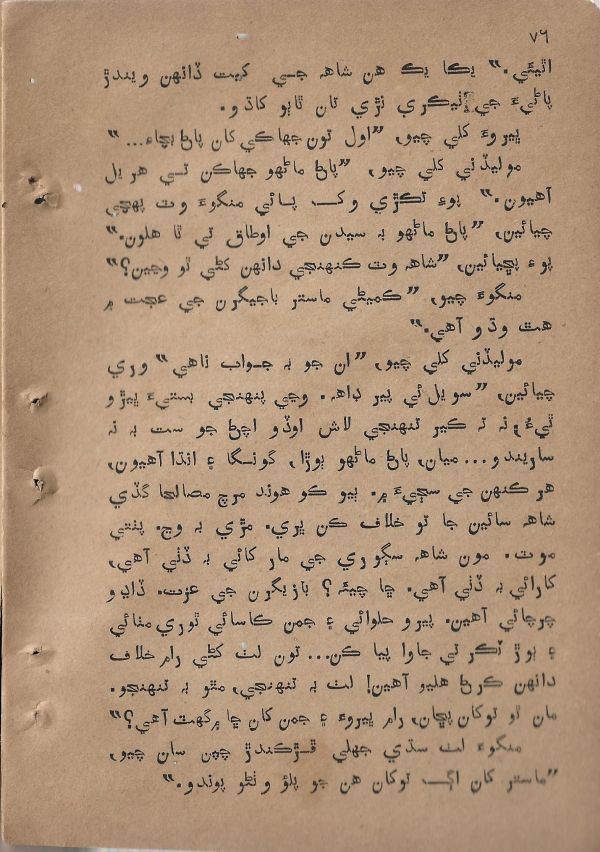 ٧٦
اٿيئي.“ يڪا يڪ هن شاهہ جي کيت ڏانهن ويندڙ
پاڻيءَ جي ٺيڪري نڙي تان ٽاٻو کاڌو.
پيروءَ کلي چيو، ”اول تون جهاڪي کان پاڻ بچاءِ...“
موليڏني کلي چيو، ”پاڻ ماڻهو جهاڪن تي هريل
آهيون.“ پوءِ تڪڙي وک پائي منگوءَ وٽ پهچي
چيائين، ”پاڻ ماڻهو بہ سيدن جي اوطاق تي ٿا هلون.“
پوءِ پڇيائين، ”شاهہ وٽ ڪنهنجي دانهن کڻي ٿو وڃين؟“
منگوءَ چيو، ”ڪميڻي ماستر باجيگرن جي عجت ۾
هٿ وڌو آهي.“
موليڏني کلي چيو، ”ان جو بہ جواب ناهي“ وري
چيائين، ”سويل ئي پير ڊاهہ. وڃي پنهنجي بستيءَ ڀيڙو
ٿيءُ، نہ تہ ڪير تنهنجي لاش اوڏو اچڻ جو ست بہ نہ
ساريندو... ميان، پاڻ ماڻهو ٻوڙا، گونگا ۽ انڌا آهيون،
هر ڪنهن جي سڄيءَ ۾. ٻيو ڪو هوند مرچ مصالحا گڏي
شاهہ سائين جا ٿو خلاف ڪن ڀري. مڙي بہ وڃ. پنتي
موٽ. مون شاهہ سڳوري جي مار کائي بہ ڏٺي آهي،
کارائي بہ ڏٺي آهي. ڇا چيئہ؟ بازيگرن جي عزت. ڏاڍو
چرچائي آهين. پيرو حلوائي ۽ جمن ڪاسائي ٿوري مفائي
۽ ٻوڙ ٽڪر تي جاوا پيا ڪن... تون لٺ کڻي رام خلاف
دانهن ڪرڻ هليو آهين! لٺ بہ تنهنجي، مٿو بہ تنهنجو.
مان ٿو توکان پڇان، رام پيروءَ ۽ جمن کان ڇا ۾ گهٽ آهي؟“
منگوءَ لٺ سڌي جهلي ڦڙڪندڙ چپن سان چيو،
”ماستر کان اڳ توکان هن جو پلؤ وٺڻو پوندو.“